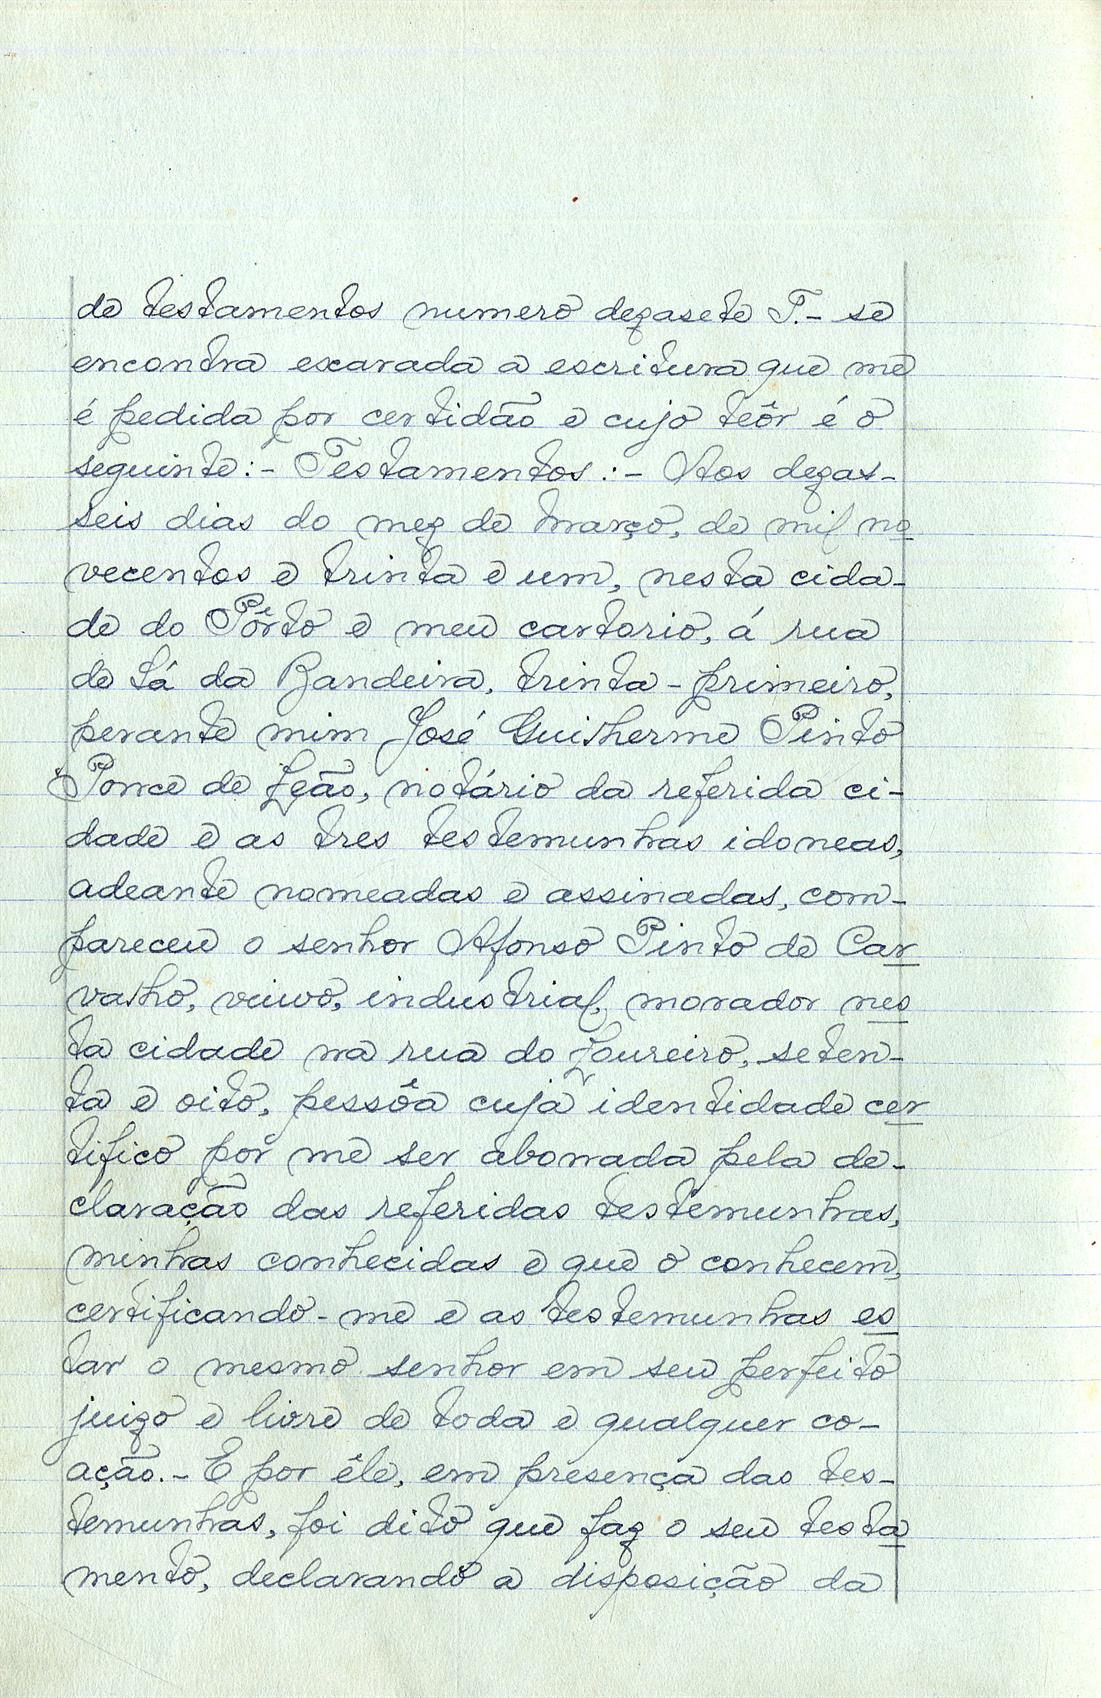 de testamentos numero dezasete T.- se
encontra exarada a escritura que me
é pedida por certidão e cujo teôr é o
seguinte:- Testamentos:- Aos dezas-
seis dias do mez de Março, de mil no
vecentos e trinta e um, nesta cida-
de do Pôrto e meu cartorio, á rua
de Sá da Bandeira, trinta-primeiro,
perante mim José Guilherme Pinto
Ponce de Leão, notário da referida ci-
dade e as tres testemunhas idoneas,
adeante nomeadas e assinadas, com-
pareceu o senhor Afonso Pinto de Car
valho, viuvo, industrial, morador nes
ta cidade na rua do Loureiro, seten-
ta e oito, pessôa cuja identidade cer
tifico por me ser abonada pela de-
claração das referidas testemunhas,
minhas conhecidas e que o conhecem,
certificando-me e as testemunhas es
tar o mesmo senhor em seu perfeito
juizo e livre de toda e qualquer co-
ação.- E por êle, em presença das tes-
temunhas, foi dito que faz o seu testa
mento, declarando a disposição da